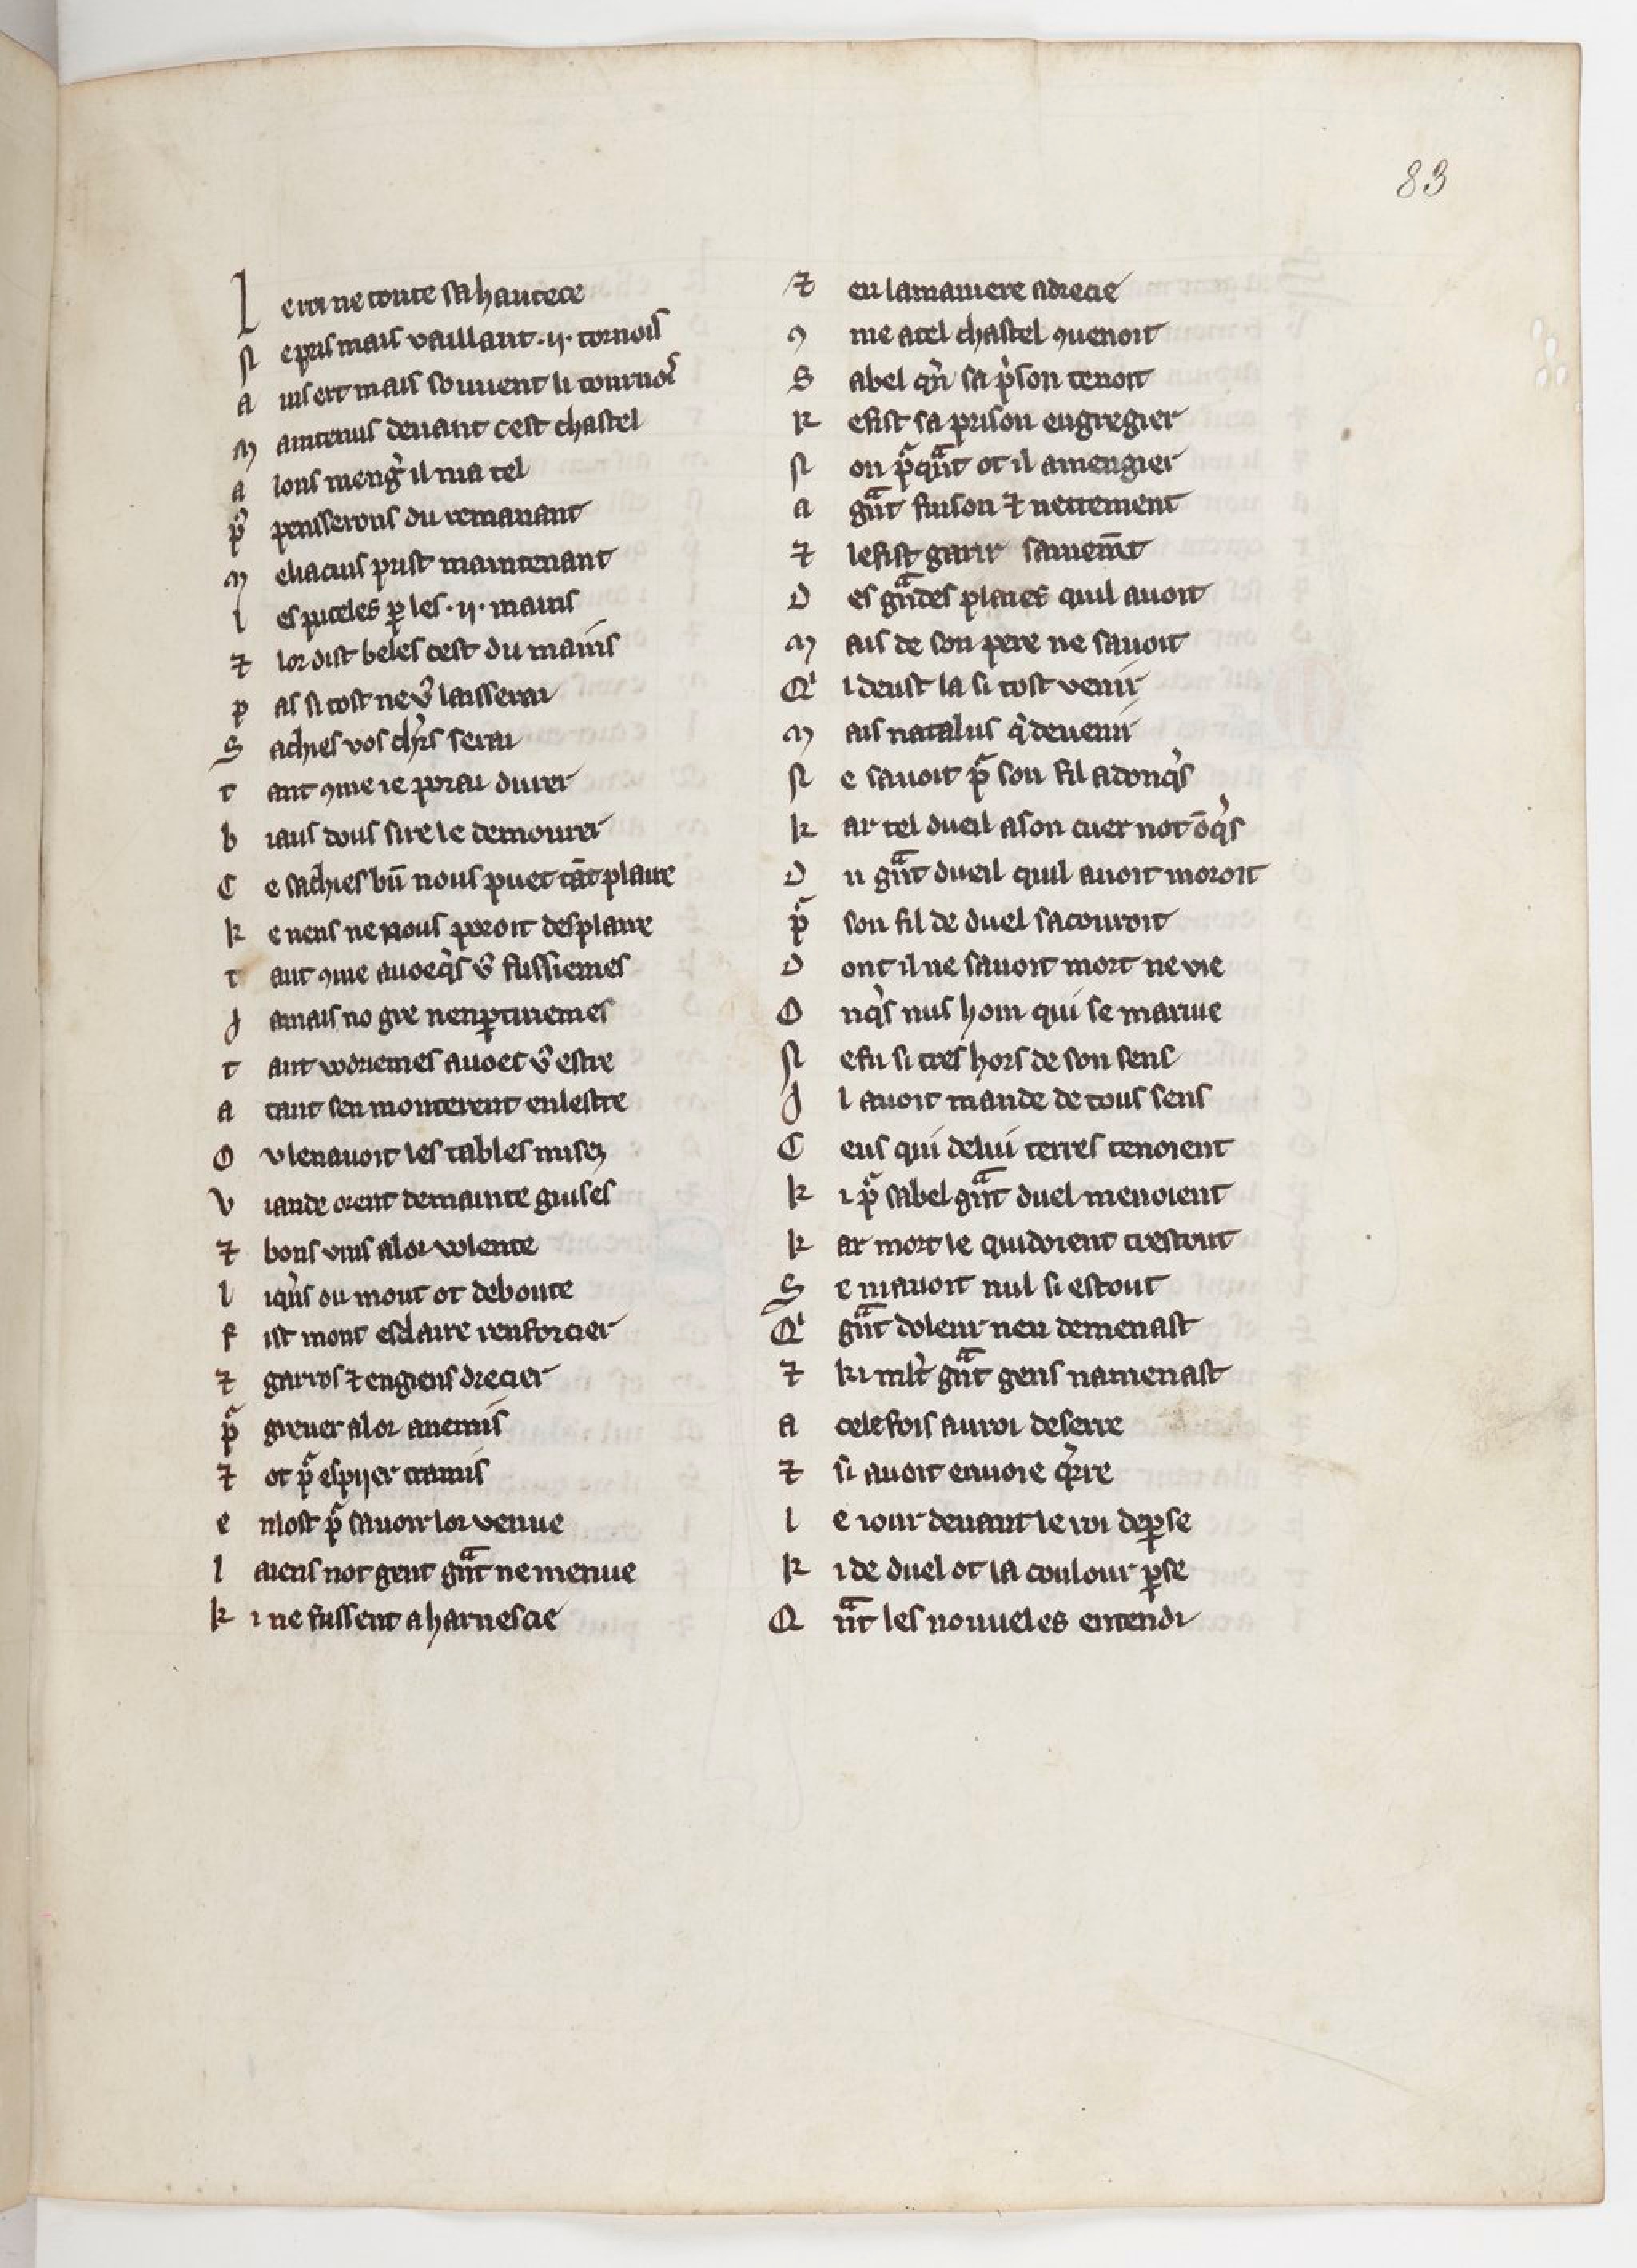 83
L e roi ne toute sa hautece
N e pris mais vaillant .ij. tornois
A ins ert mais souuent li tournois
M aintenis deuant cest chastel
A lons meng̾ il ma tel
pͬ pensserons du remanant
M eliacins prist maintenant
L es puceles ꝑ les .ij. mains
⁊ lor dist beles cest du mains
P as si tost ne vͦ laisserai
S achies vos ch'rs serai
T ant ꝯme ie porrai durer
B iaus dous sire le demourer
C e sachies bn̄ nous puet tāt plaire
K e riens ne nous poroit desplaire
T ant ꝯme auoeq̾s vͦ fussiemes
J amais no gre nen ꝑtiriemes
T ant vorriemes auoec vͦ estre
A tant sen monterent en lestre
O v len auoit les tables mises
V iande orent de mainte guises
⁊ bons vins a lor volente
L iq̾us ou mout ot de bonte
F ist mont esclaire renforcier
⁊ garros ⁊ engiens drecier
pᵃ greuer a lor anemis
⁊ ot pᵃ espijer tramis
E n lost pᵃ sauoir lor venue
L aiens not gent gᵃnt ne menue
K i ne fussent a harnescie
⁊ en la maniere adrecie
ꝯ me a tel chastel ꝯuenoit
S abel qⁱ en sa pⁱson tenoit
R efist sa prison engregier
N on pᵃ qᵃnt ot il a mengier
A gᵃnt fuison ⁊ nettement
⁊ le fist garir sainem̄t
D es gᵃndes plaies quil auoit
M ais de son pere ne sauoit
Qⁱ i deust la si tost venir
M ais natalus qⁱ deuenir
N e sauoit pᵃ son fil adonq̾s
K ar tel dueil a son cuer not ōq̾s
D u gᵃnt dueil quil auoit moroit
pᵃ son fil de duel sacouroit
D ont il ne sauoit mort ne vie
O nq̾s nus hom qui se marvie
N e fu si tres hors de son sens
J l auoit mande de tous sens
C eus qui de lui terres tenoient
K i pᵃ sabel gᵃnt duel menoient
K ar mort le quidoient trestout
S e ni auoit nul si estout
Qⁱ gᵃnt doleur nen demenast
⁊ ki ml't gᵃnt gens namenast
A cele fois au roi deserre
⁊ si auoit enuoie q̾rre
L e iour deuant le roi de ꝑse
K i de duel ot la coulour ꝑse
Q ᵃnt les nouueles entendi